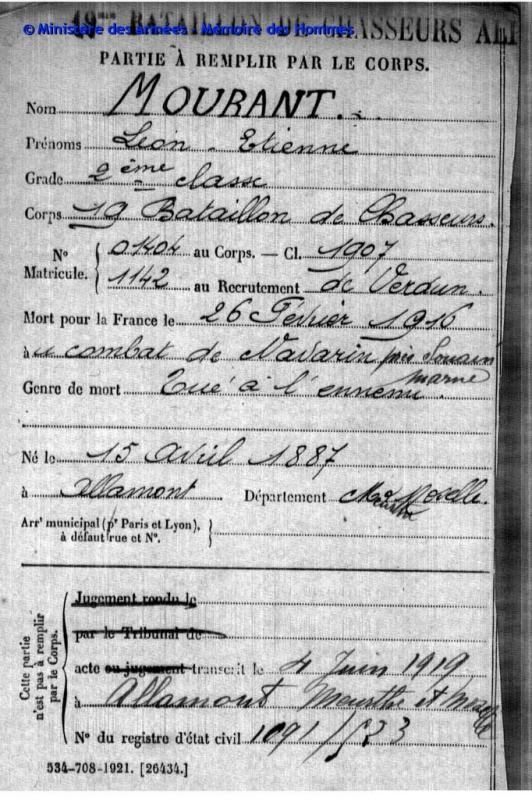 19me BATAILLON DE CHASSEURS
© Ministère des armées - Mémoire des Hommes
PARTIE À REMPLIR PAR LE CORPS.
Nom MOURANT.
Prénoms Léon - Etienne
Grade 2ème classe
Corps 19 Bataillon de Chasseurs.
N° Matricule. { 01404 au Corps. — Cl. 1907
1142 au Recrutement de Verdun.
Mort pour la France le 26 Février 1916
à u combat de Navarin près Souain
marne
Genre de mort Tué à l'ennemi.
Né le 15 Avril 1887
à Allamont Département Mthe Moselle.
Arrt municipal (pr Paris et Lyon), à défaut rue et N°. }
Cette partie n'est pas à remplir par le Corps. {
Jugement rendu le
par le Tribunal de
acte ou jugement transcrit le 4 Juin 1919
à Allamont Meurthe et Moselle
N° du registre d'état civil 1091/533
534-708-1921. [26434.]